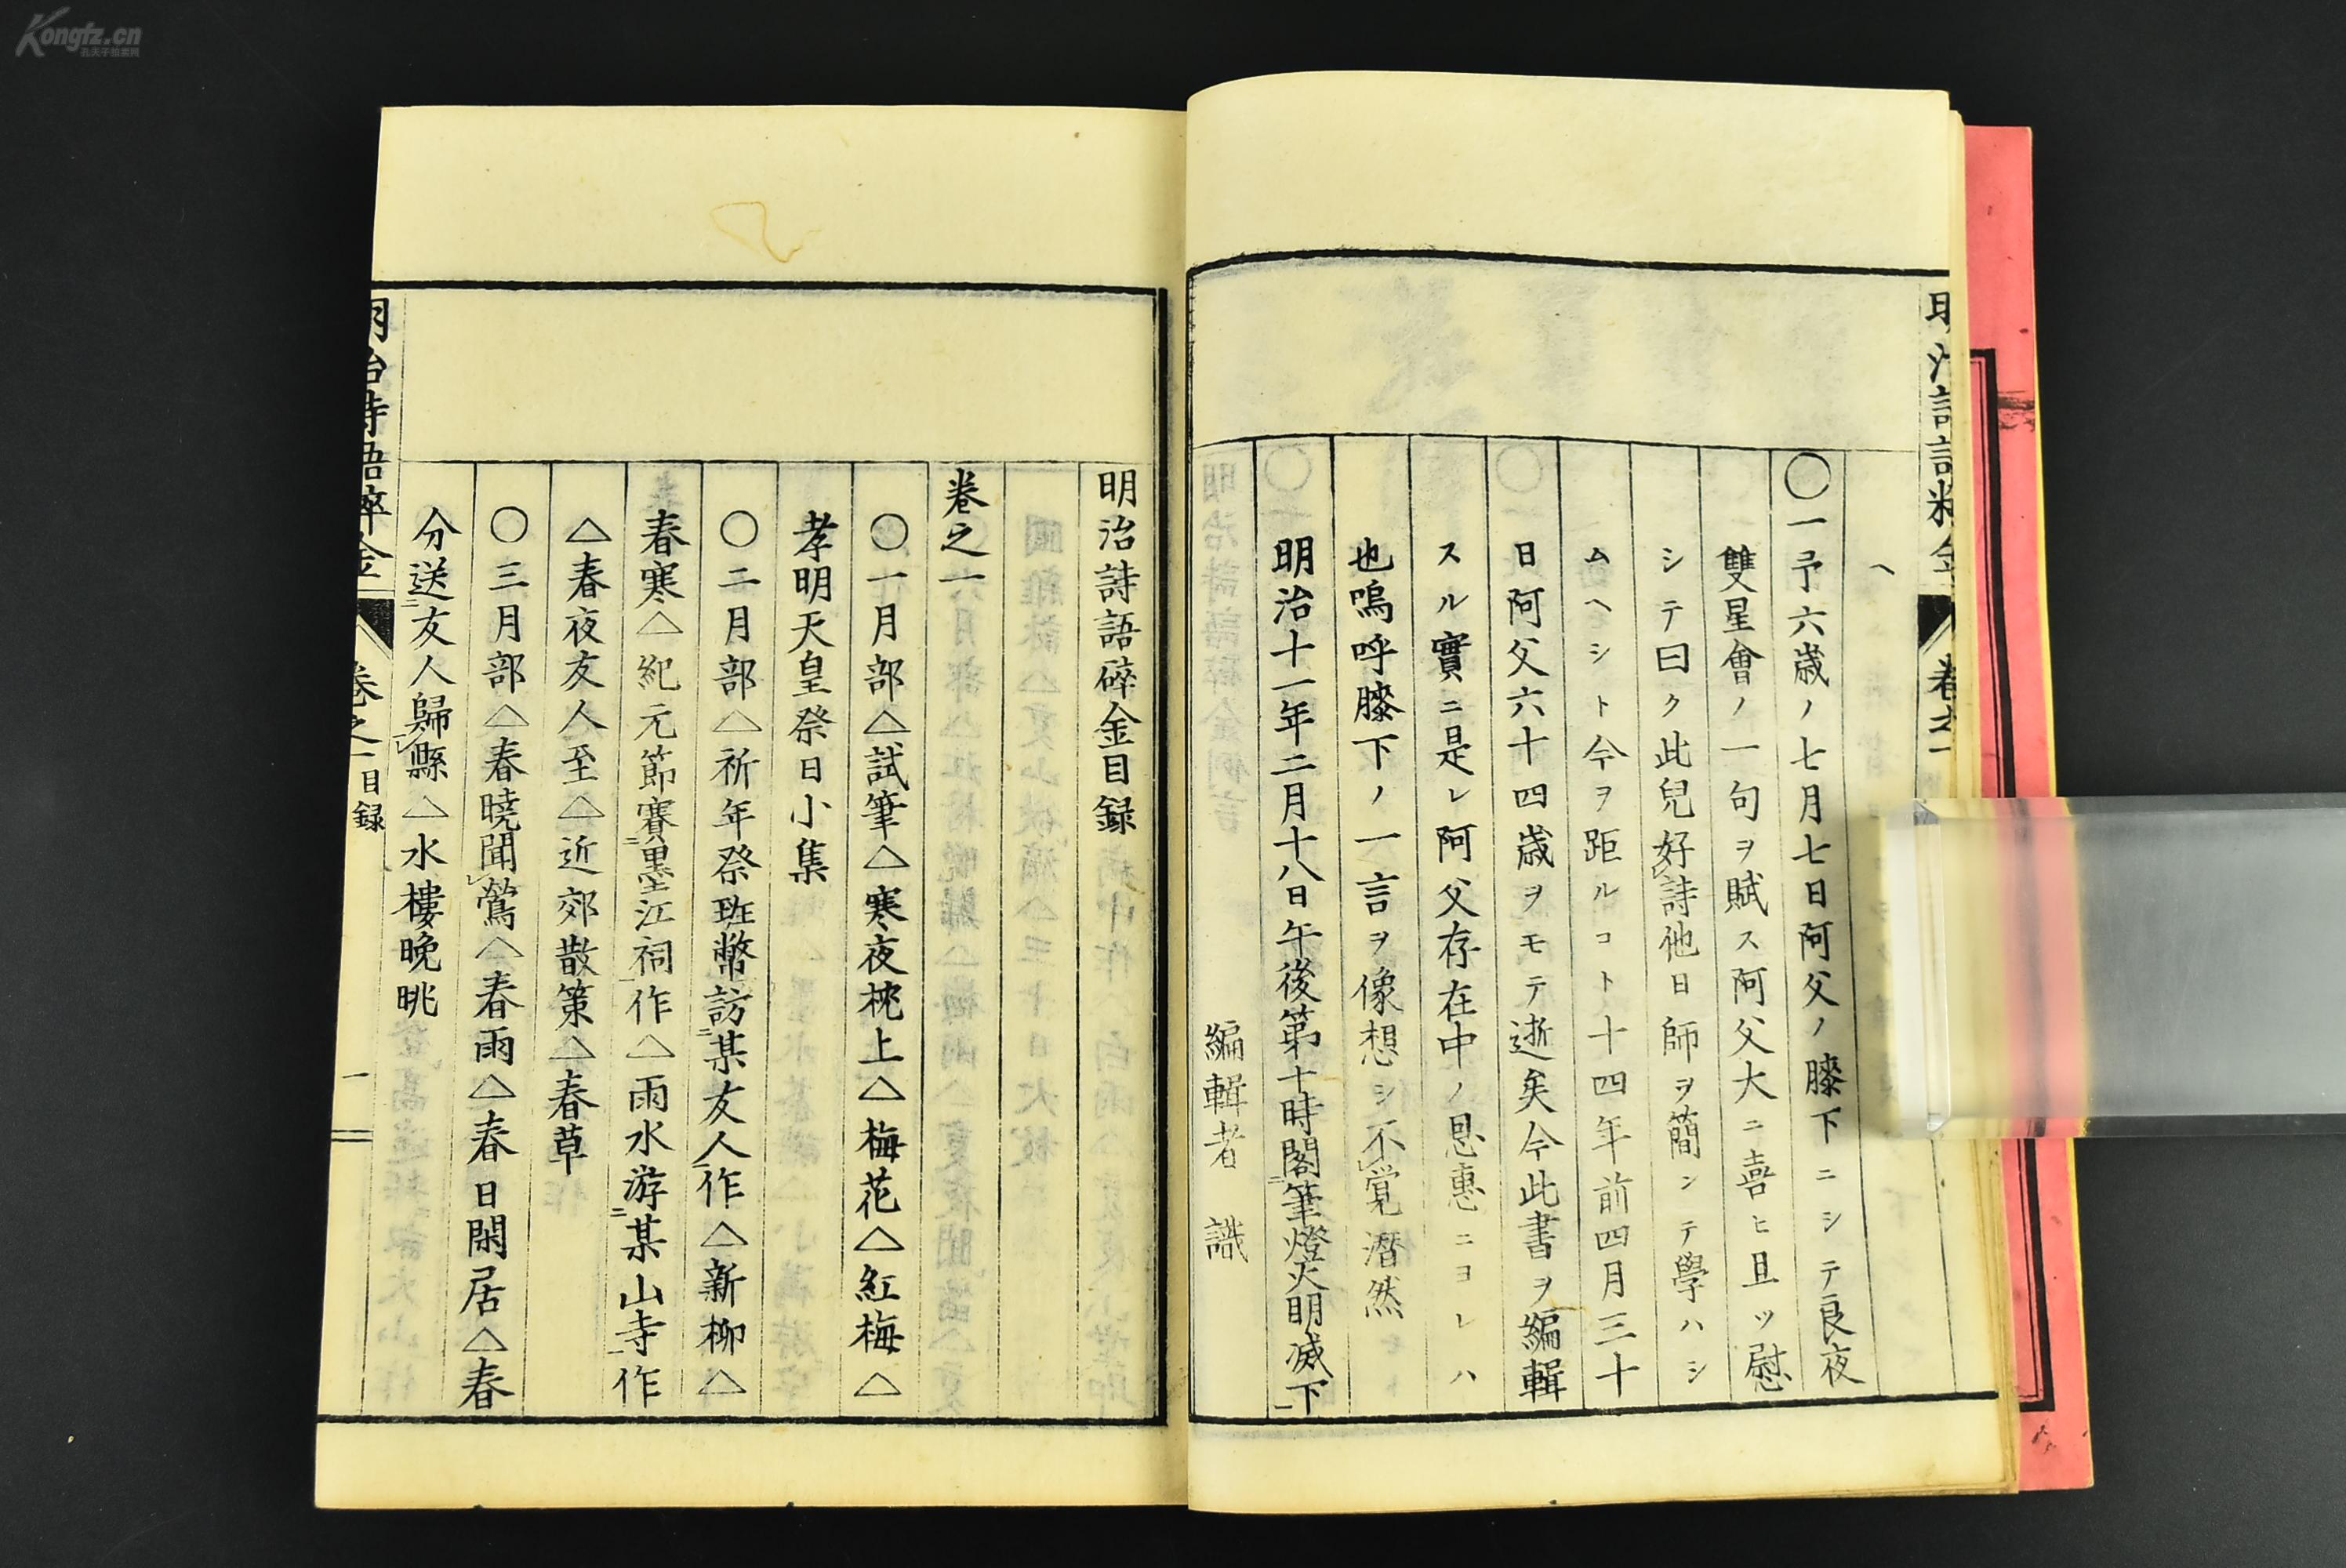 ヘ
〇一予六歳ノ七月七日阿父ノ膝下ニシテ良夜
雙星會ノ一句ヲ賦ス阿父大ニ喜ヒ且ツ慰
シテ曰ク此兒好詩他日師ヲ簡ンテ學ハシ
ムヘシト今ヲ距ルコト十四年前四月三十
日阿父六十四歳ヲモテ逝矣今此書ヲ編輯
スル實ニ是レ阿父存在中ノ恩惠ニヨレハ
也嗚呼膝下ノ一言ヲ像想シ不覚潸然
明治十一年二月十八日午後第十時閣筆燈火明滅下
編輯者 識
明治詩語碎金目録
卷之一
〇一月部△試筆△寒夜枕上△梅花△紅梅△
孝明天皇祭日小集
〇二月部△祈年祭班幣訪某友人作△新柳△
春寒△紀元節賽墨江祠作△雨水游某山寺作
△春夜友人至△近郊散策△春草
〇三月部△春曉聞鶯△春雨△春日閑居△春
分送友人歸縣△水樓晩眺
明治詩語碎金 卷之一 目録 一
Kongfz.cn
孔夫子拍卖网